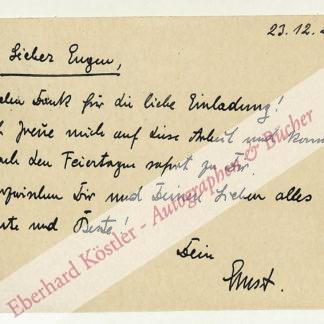 23.12.
Lieber Eugen,
elen Dank für die liebe Einladung!
h freue mich auf diese Arbeit und komm
ach den Feiertagen sofort zu Dir.
nzwischen Dir und Deinen Lieben alles
ute und Beste!
Dein
Ernst.
Eberhard Köstler - Autographen & Bücher